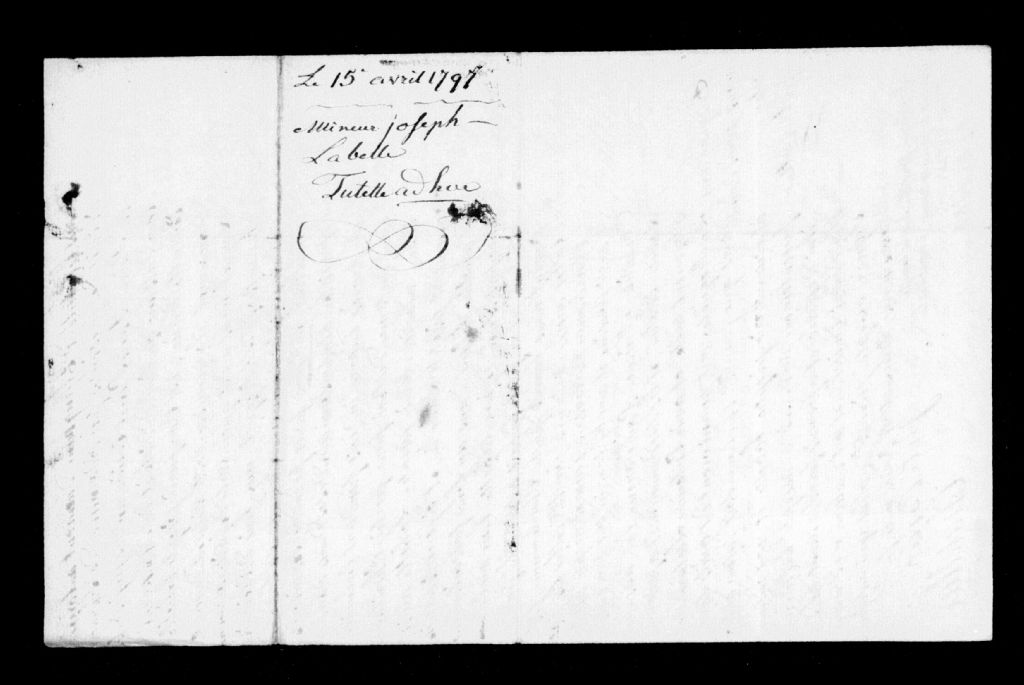 Le 15 avril 1797
Mineur joseph —
Labelle
Tutelle ad hoc